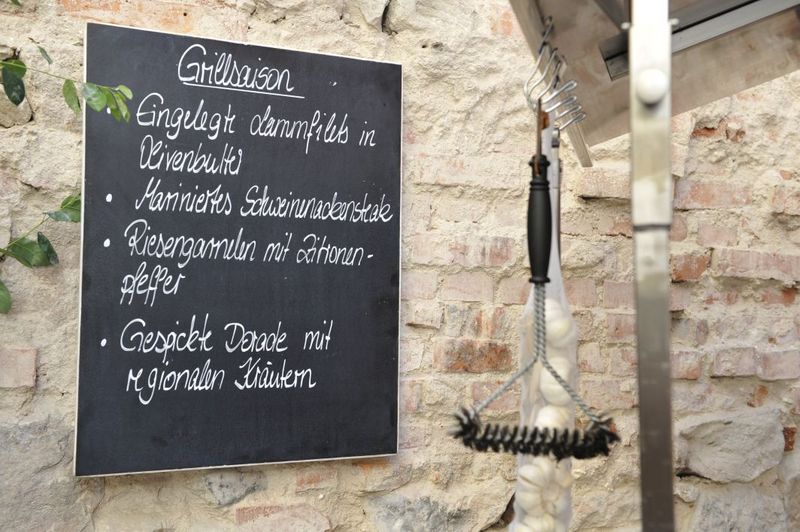 Grillsaison
• Eingelegte Lammfilets in
Olivenbutter
• Mariniertes Schweinenackensteak
• Riesengarnelen mit Zitronen-
pfeffer
• Gespickte Dorade mit
regionalen Kräutern